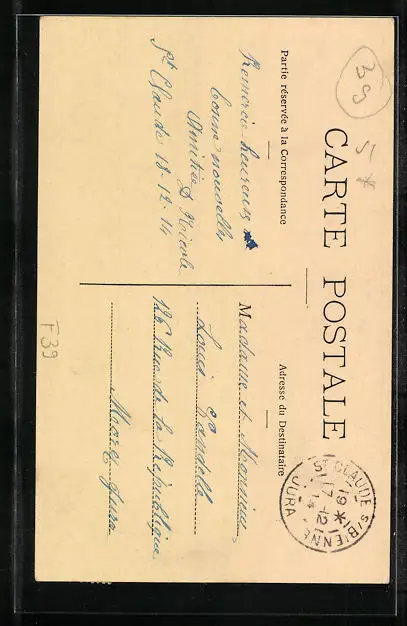 39
5 *
CARTE POSTALE
Partie réservée à la Correspondance
Adresse du Destinataire
Remercie heureuse
bonne nouvelle
Amitiés
St Claude 18-12-14
Madame et Monsieur
Louis
126 Rue de la République
Morez Jura
ST CLAUDE S/BIENNE
17
19 -12
14
JURA
F39